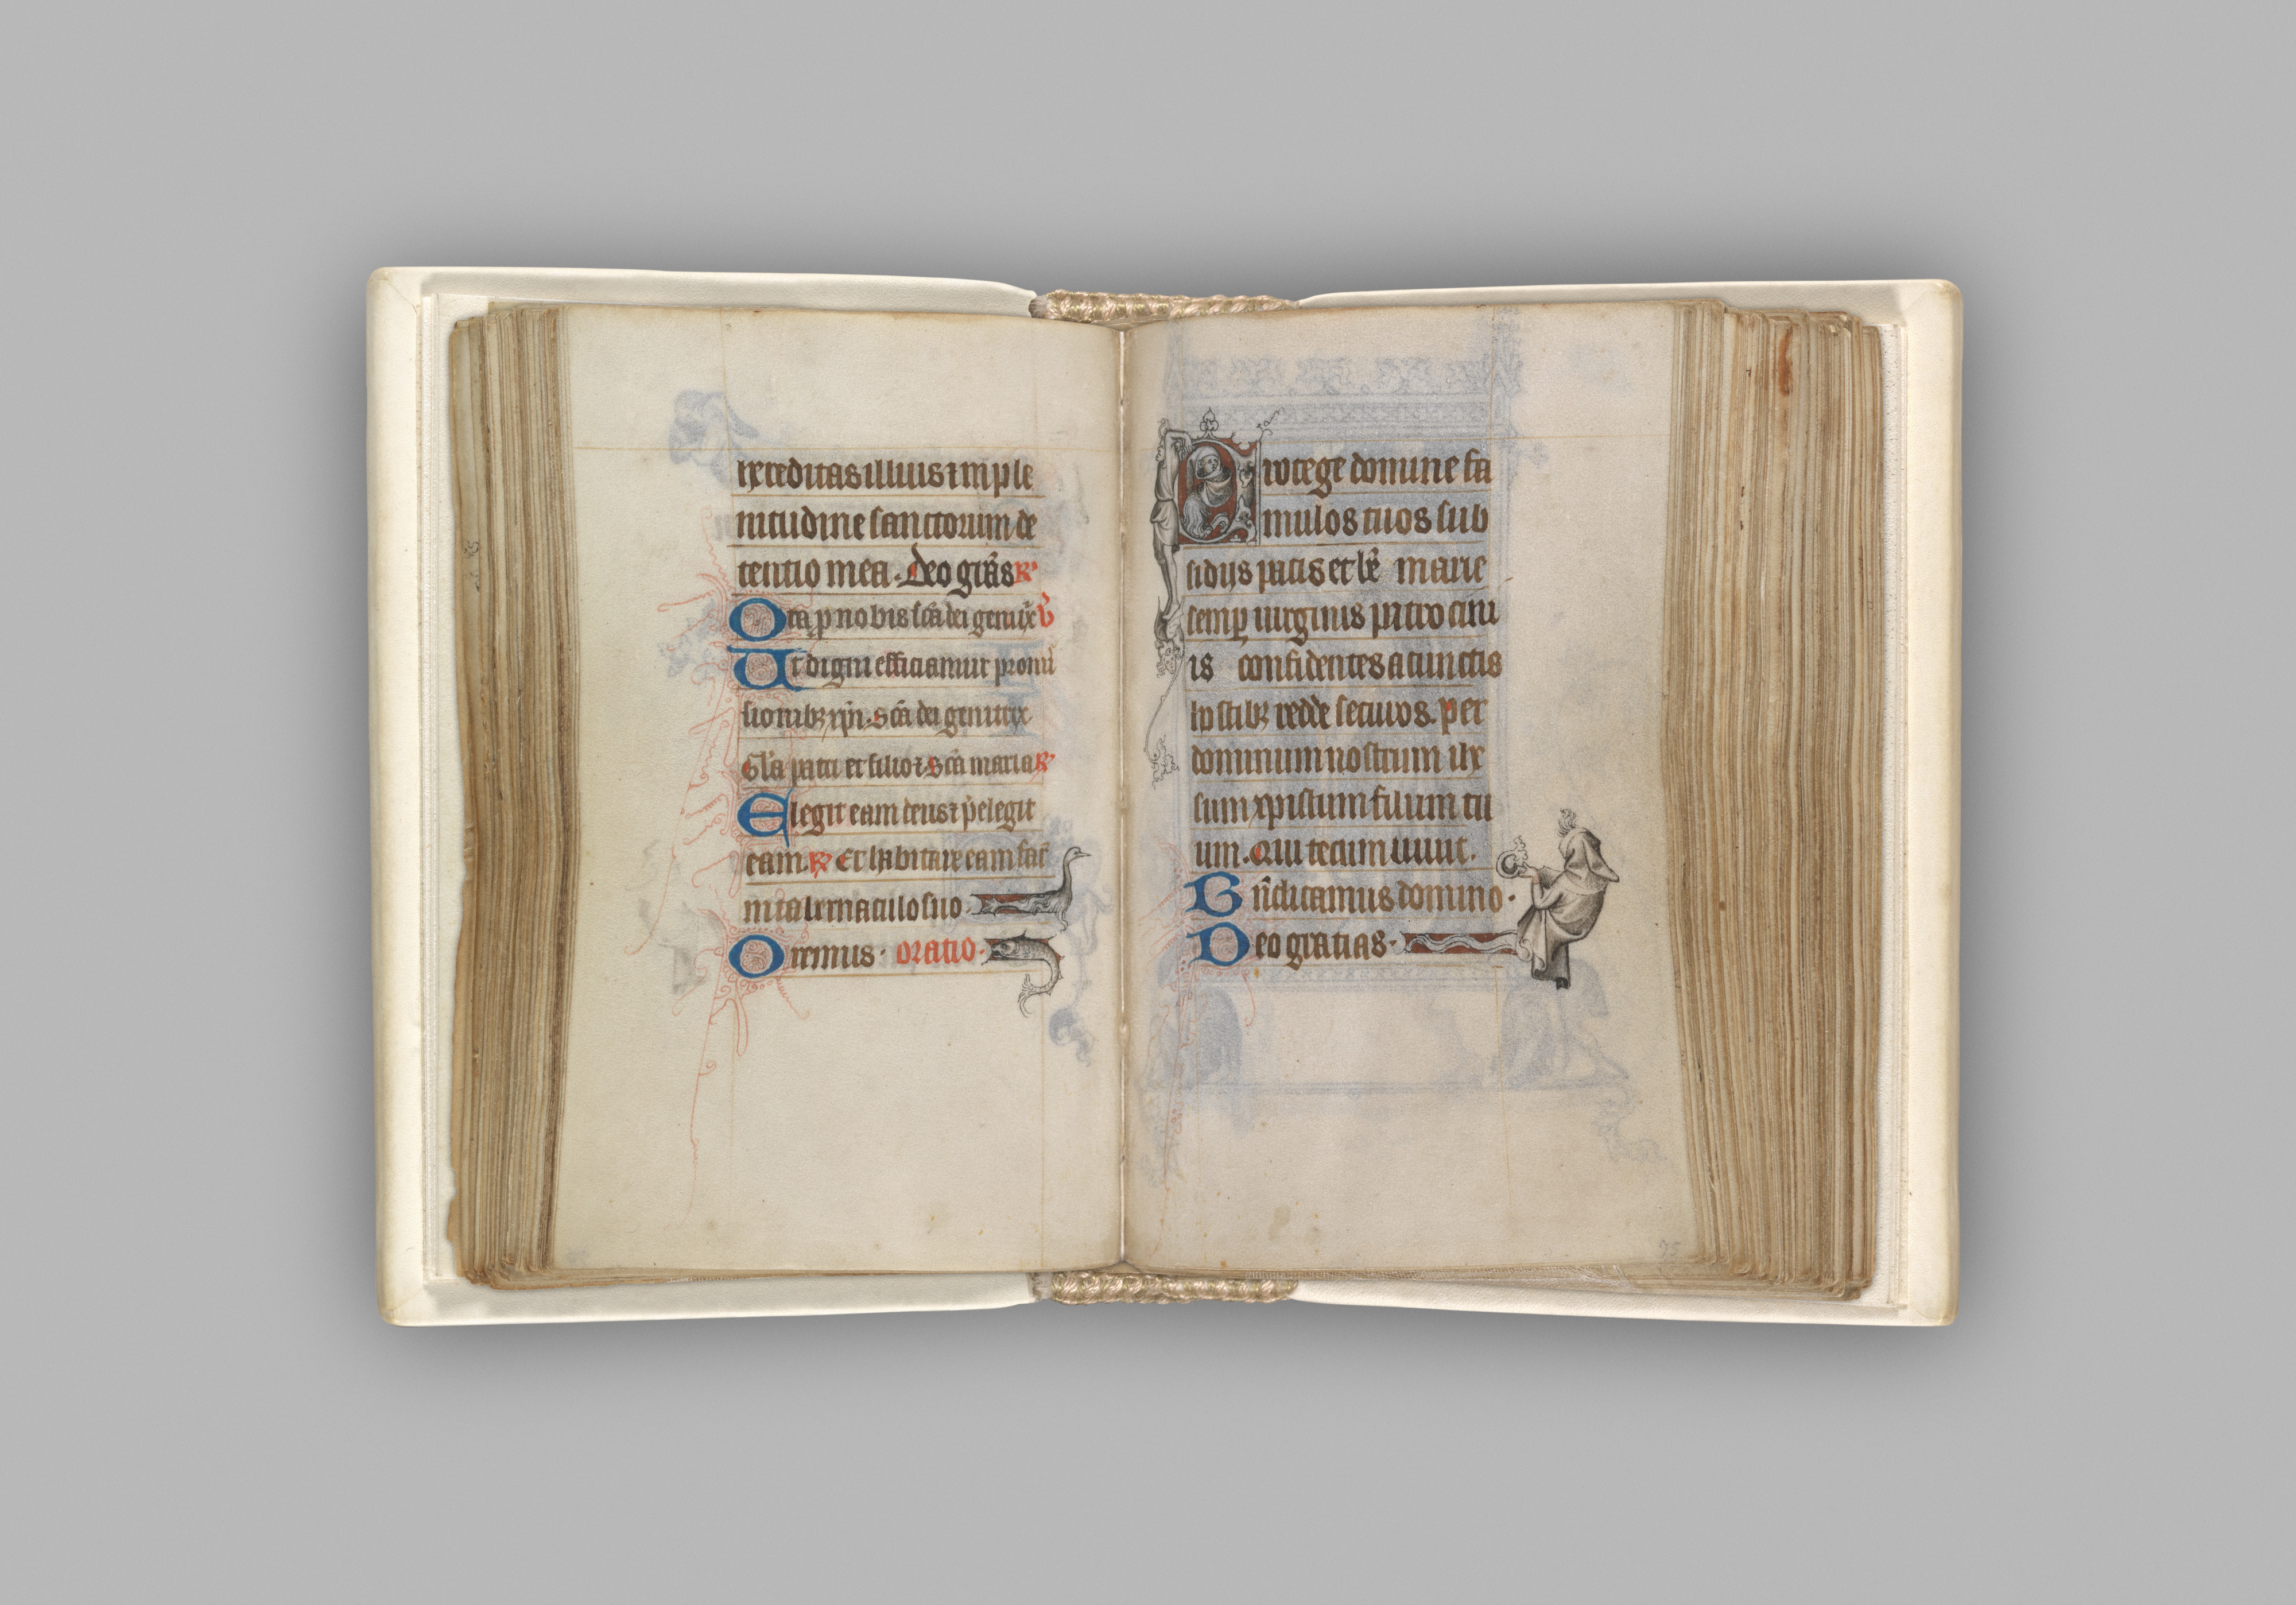 ix ereditas illius ⁊ in ple
nitudine sanctorum de
tentio mea. Deo gr̃as R̷
Ora ꝓ nobis sc̃a dei genit̾x v̾
Ut digni efficiamur promi
sionib⁊ xp̃i. Sc̃a dei genitrix
Gl̃a patri et filio ⁊ Sc̃a maria R̷
Elegit eam deus ⁊ p̾elegit
eam. R̷ Et habitare eam fac̾
in tabernaculo suo.
Oremus. Oratio.
Protege domine fa
mulos tuos sub
sidijs pacis et be᷑ marie
semꝑ uirginis patrocini
is confidentes a cunctis
hostib⁊ redde securos. per
dominum nostrum ihe
sum xpistum filium tu
um. Qui tecum uiuit.
Bn̄dicamus domino.
Deo gratias.
75